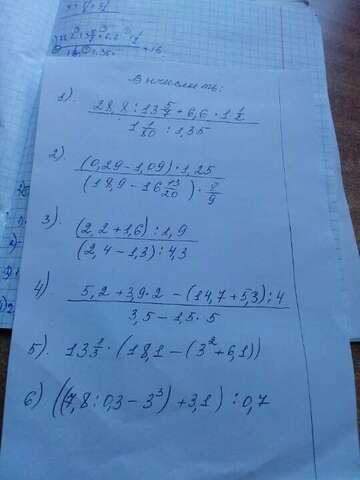 Вычислить:
1). (28,8 : 13 5/7 + 6,6 · 1 1/2) / (1 1/80 : 1,35)
2). ((0,29 - 1,09) · 1,25) / ((18,9 - 16 13/20) · 8/9)
3). ((2,2 + 1,6) : 1,9) / ((2,4 - 1,3) : 4,3)
4). (5,2 + 3,9 · 2 - (14,7 + 5,3) : 4) / (3,5 - 1,5 · 5)
5). 13 1/3 · (18,1 - (3² + 6,1))
6) ((7,8 : 0,3 - 3³) + 3,1) : 0,7